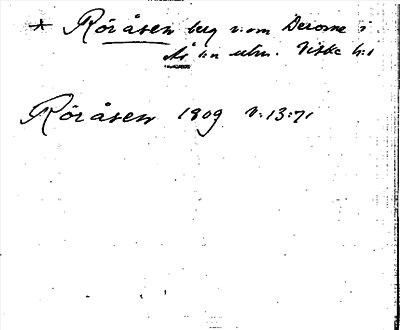 * Röråsen berg v. om Derome i
Ås sn utm. Viske h:d
Röråsen 1809 V:13:71